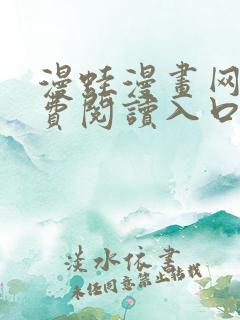 漫蛙漫畫网
費閱讀入口
淡水依書
未经同意禁止转载